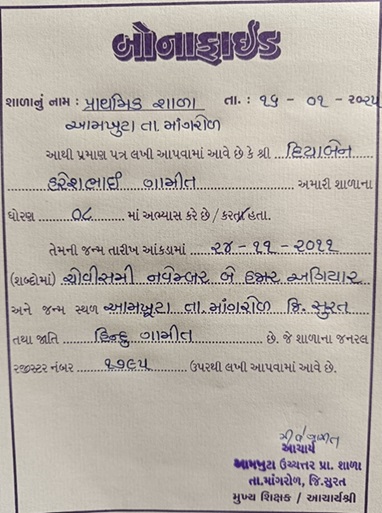 બોનાફાઈડ
શાળાનું નામ : પ્રાથમિક શાળા તા. : ૧૬ - ૦૧ - ૨૦૨૫
આમખુટા તા. માંગરોળ
આથી પ્રમાણ પત્ર લખી આપવામાં આવે છે કે શ્રી દિયાબેન
હરેશભાઈ ગામીત અમારી શાળાના
ધોરણ ૦૮ માં અભ્યાસ કરે છે / કરતા હતા.
તેમની જન્મ તારીખ આંકડામાં ૨૪ - ૧૧ - ૨૦૧૧
(શબ્દોમાં) ચોવીસમી નવેમ્બર બે હજાર અગિયાર
અને જન્મ સ્થળ આમખૂટા તા. માંગરોળ જિ. સુરત
તથા જાતિ હિન્દુ ગામીત છે. જે શાળાના જનરલ
રજીસ્ટર નંબર ૧૭૯૫ ઉપરથી લખી આપવામાં આવે છે.
આચાર્ય
આમખુટા ઉચ્ચત્તર પ્રા. શાળા
તા.માંગરોળ, જિ.સુરત
મુખ્ય શિક્ષક / આચાર્યશ્રી